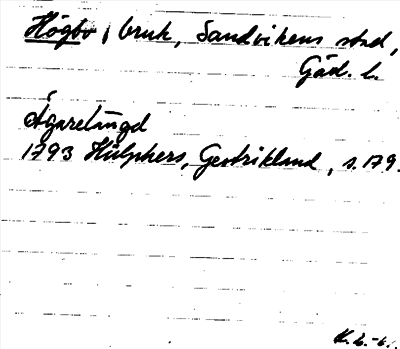 Högbo, bruk, Sandvikens stad,
Gäd. l.
Ägarelängd
1793 Hülphers, Gestrikland, s. 179.